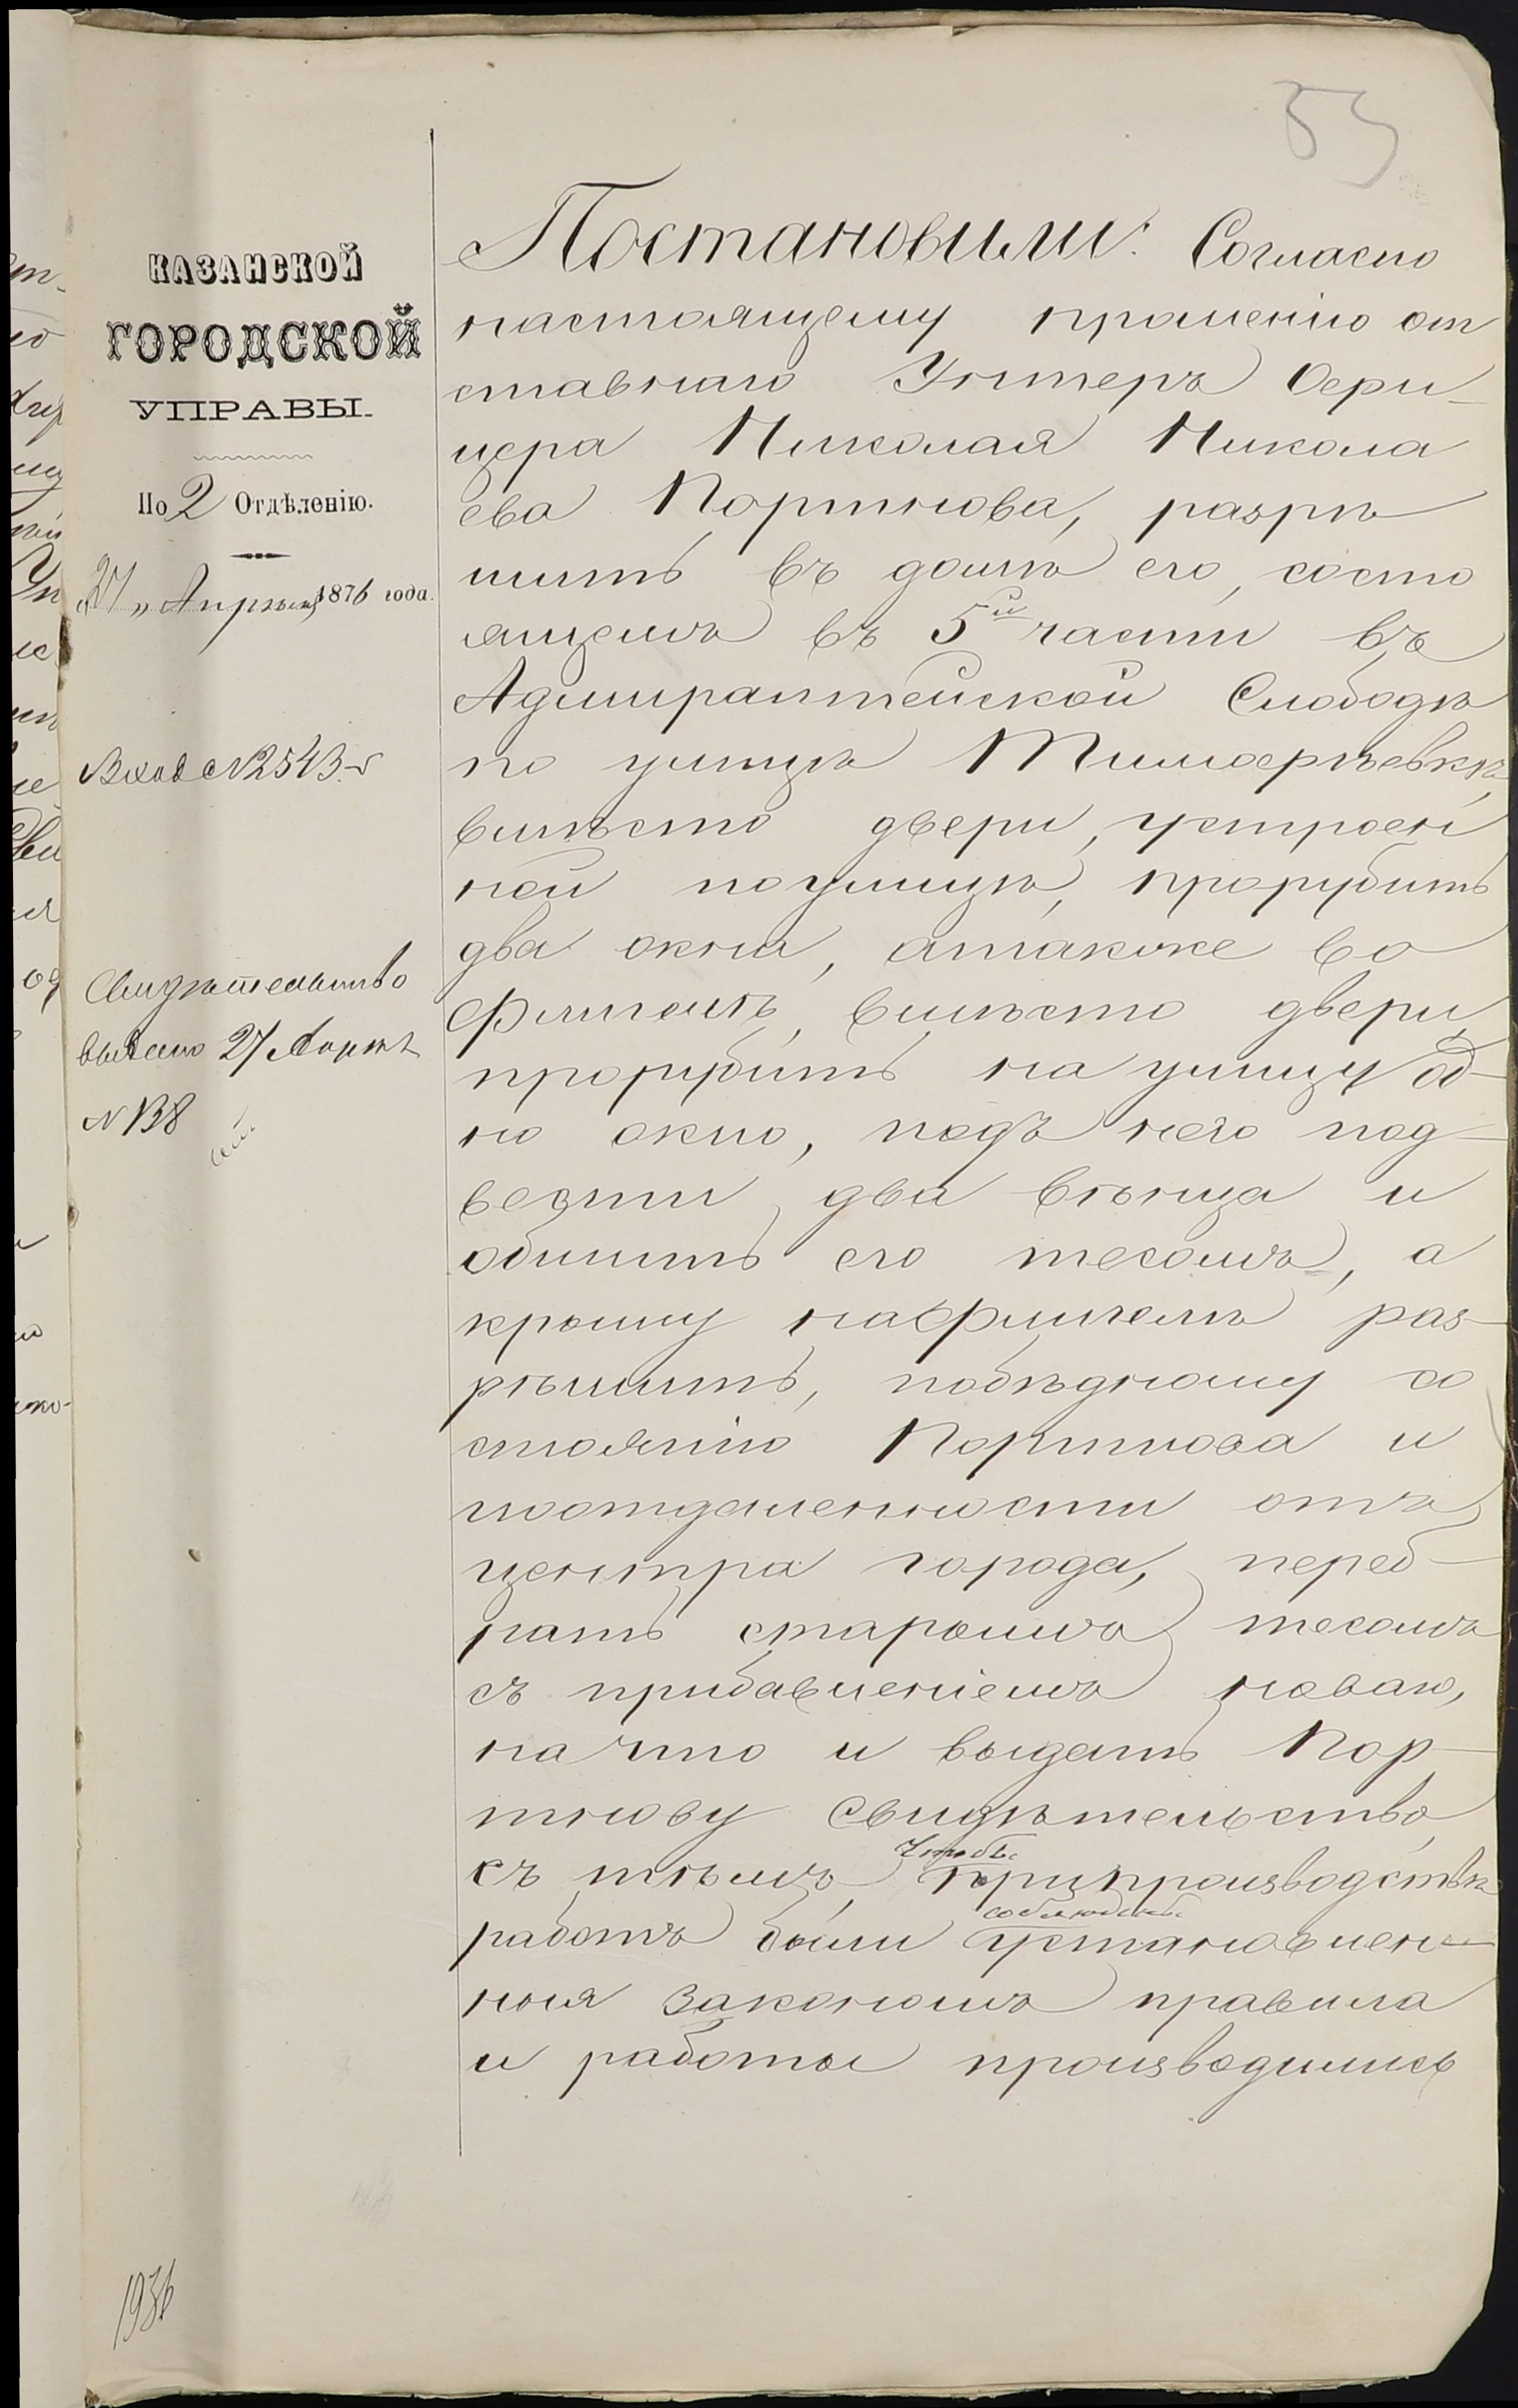 53
КАЗАНСКОЙ
ГОРОДСКОЙ
УПРАВЫ.
По 2 Отдѣленію.
„27„ Апрѣля 1876 года.
Вход. № 2543
Свидѣтельство
выдано 27 Апрѣл
№ 138
Постановили: Согласно
настоящему прошенію от
ставнаго Унтеръ Офи-
цера Николая Никола
ева Портнова, разрѣ
шить въ домѣ его, состо
ящемъ въ 5й части въ
Адмиралтейской Слободѣ
по улицѣ Тимофѣевкѣ,
вмѣсто двери, устроен
ной поулицѣ, прорубить
два окна, атакже во
флигелѣ, вмѣсто двери
прорубить на улицу од-
но окно, подъ него под-
вести два вѣнца и
обшить его тесомъ, а
крышу нафлигелѣ раз-
рѣшить, побѣдному со
стоянію Портнова и
поотдаленности отъ
центра города, переб-
рать старымъ тесомъ
съ прибавленіемъ новаго,
на что и выдать Пор-
тнову свидѣтельство
съ тѣмъ, чтобы припроизводствѣ
работъ были соблюдены установлен-
ныя закономъ правила
и работы производились
1936